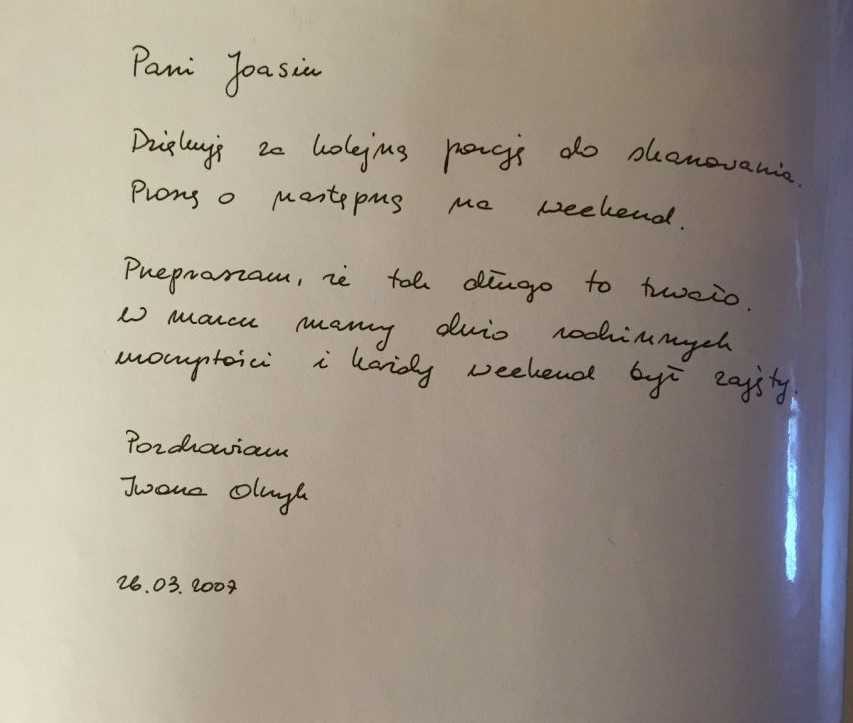 Pani Joasiu
Dziękuję za kolejną porcję do skanowania.
Proszę o następną na weekend.
Przepraszam, że tak długo to trwało.
W marcu mamy dużo rodzinnych
uroczystości i każdy weekend był zajęty.
Pozdrawiam
Iwona
26.03.2007